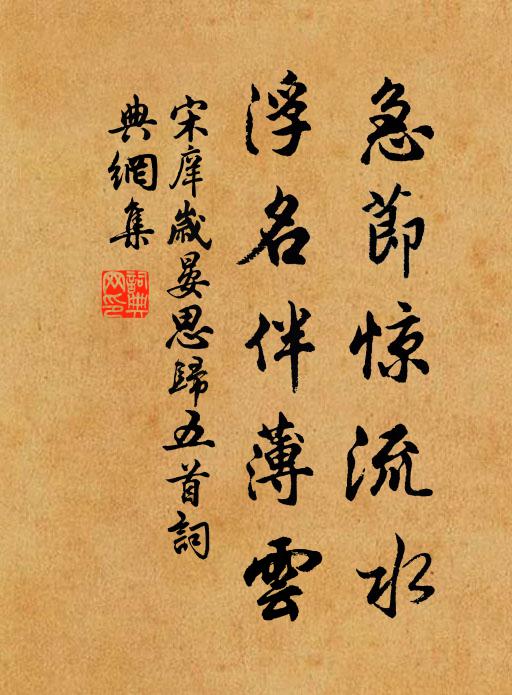 急節惊流水
浮名伴薄雲
宋庠歲晏思歸五首詞
典網集
詞典網印